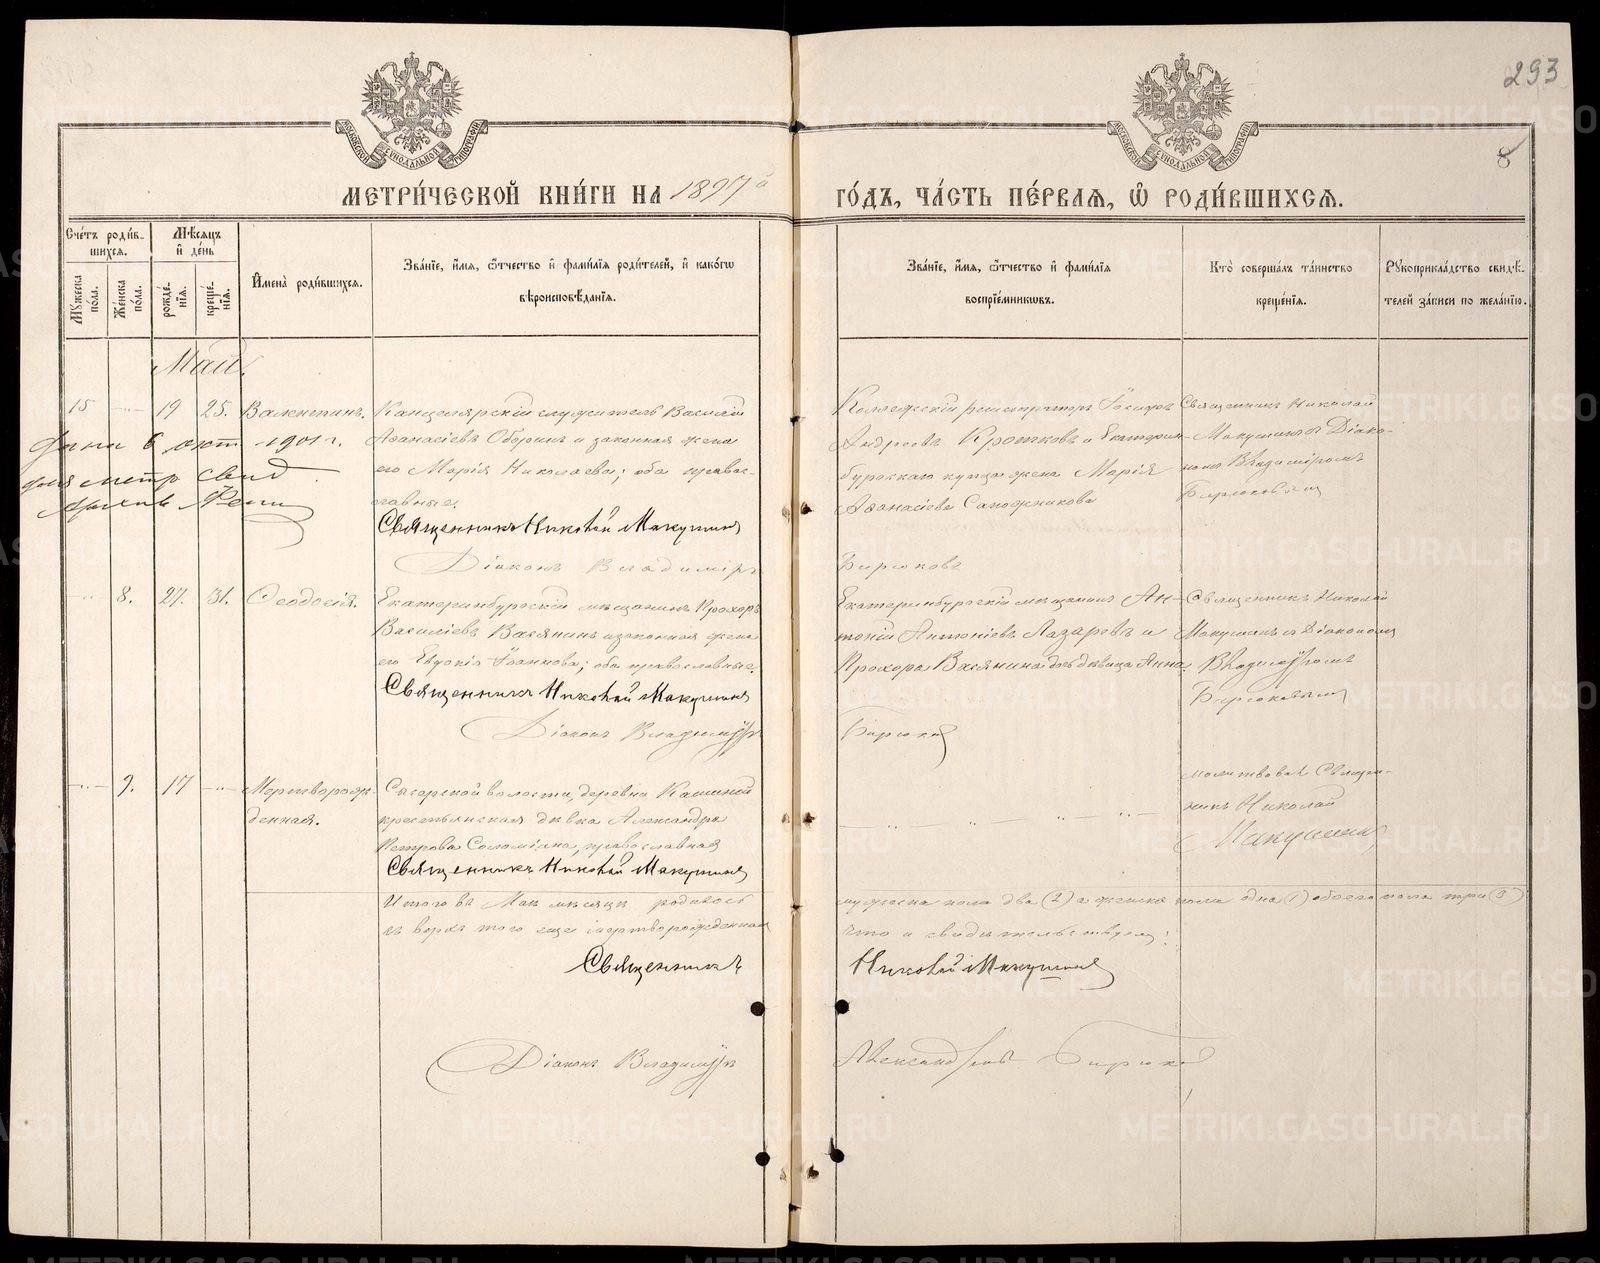 293
8
МОСКОВСКОЙ СѴНОДАЛЬНОЙ ТИПОГРАФІИ
МОСКОВСКОЙ СѴНОДАЛЬНОЙ ТИПОГРАФІИ
МЕТРИ́ЧЕСКОЙ КНИ́ГИ НА 1897й ГО́ДЪ, ЧА́СТЬ ПЕ́РВАѦ, Ѡ҆ РОДИ́ВШИХСѦ.
Сче́тъ роди́в-
шихсѧ.
Мѣ́сѧцъ
и҆ де́нь
Мꙋ́жеска по́ла.
Же́нска по́ла.
рожде́-
нїѧ.
креще́-
нїѧ.
И҆мена̀ роди́вшихсѧ.
Зва́нїе, и҆́мѧ, ѻ҆́тчество и҆ фами́лїѧ роди́телей, и҆ како́гѡ
вѣроисповѣ́данїѧ.
Зва́нїе, и҆́мѧ, ѻ҆́тчество и҆ фами́лїѧ
воспрїе́мникѡвъ.
Кто̀ соверша́лъ та́инство
креще́нїѧ.
Рꙋкоприкла́дство свидѣ́-
телей за́писи по жела́нїю.
Май.
15 19 25. Валентинъ.
Канцелярскій служитель Василій
Аѳанасіевъ Оборинъ и законная жена
его Марія Николаева; оба правос-
лавные.
Священникъ Николай Макушинъ
Діаконъ Владиміръ Бирюковъ
Коллежскій регистраторъ Іосифъ
Андреевъ Кротковъ и Екатерин-
бурскаго купца жена Марія
Аѳанасіева Сапожникова
Священникъ Николай
Макушинъ съ Діако-
номъ Владиміромъ
Бирюковымъ
Дана 6 окт. 1901 г.
метр свид
8. 27. 31. Ѳеодосія.
Екатеринбургскій мѣщанинъ Прохоръ
Василіевъ Васянинъ и законная жена
его Евдокія Іоаннова; оба православные.
Священникъ Николай Макушинъ
Діаконъ Владиміръ Бирюков
Екатеринбургскій мѣщанинъ Ан-
тоній Антоніевъ Лазаревъ и
Прохора Васянина дочь дѣвица Анна.
Священникъ Николай
Макушинъ съ Діакономъ
Владиміромъ
Бирюковымъ
9. 17 Мертворож-
денная.
Сысерской волости, деревни Кашиной
крестьянская дѣвка Александра
Петрова Соломіина, православная
Священникъ Николай Макушинъ
молитвовалъ Священ-
никъ Николай
Макушинъ
Итого въ Маѣ мѣсяцѣ родилось мужеска пола два (2) а женска пола одна (1) обоего пола три (3)
въ верхъ того еще мертворожденная что и свидѣтельствуемъ:
Священникъ Николай Макушинъ
Діаконъ Владиміръ Александровъ Бирюков
METRIKI.GASO-URAL.RU